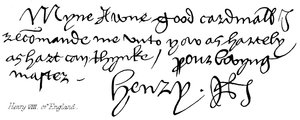 Myne Awne good cardinall I
recomande me unto yow as hartely
as hart can thynke / your lovyng
master
Henry R
Henry VIII. of England.